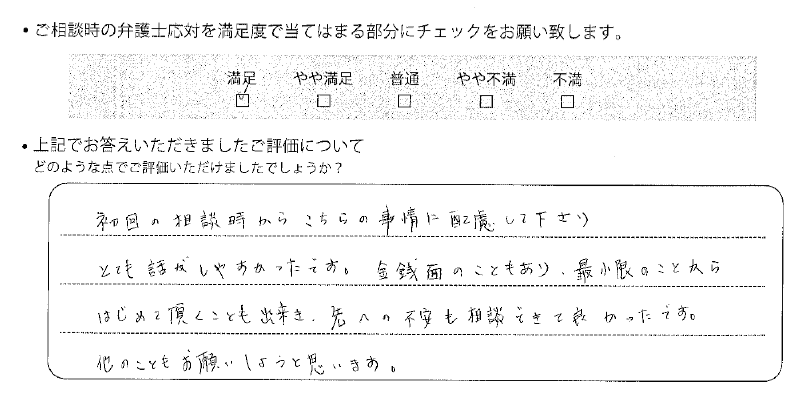 ・ご相談時の弁護士応対を満足度で当てはまる部分にチェックをお願い致します。
満足 やや満足 普通 やや不満 不満
☑ □ □ □ □
・上記でお答えいただきましたご評価について
どのような点でご評価いただけましたでしょうか？
初回の相談時からこちらの事情に配慮して下さり
とても話がしやすかったです。金銭面のこともあり、最小限のことから
はじめて頂くことも出来き、先への不安も相談できて良かったです。
他のこともお願いしようと思います。